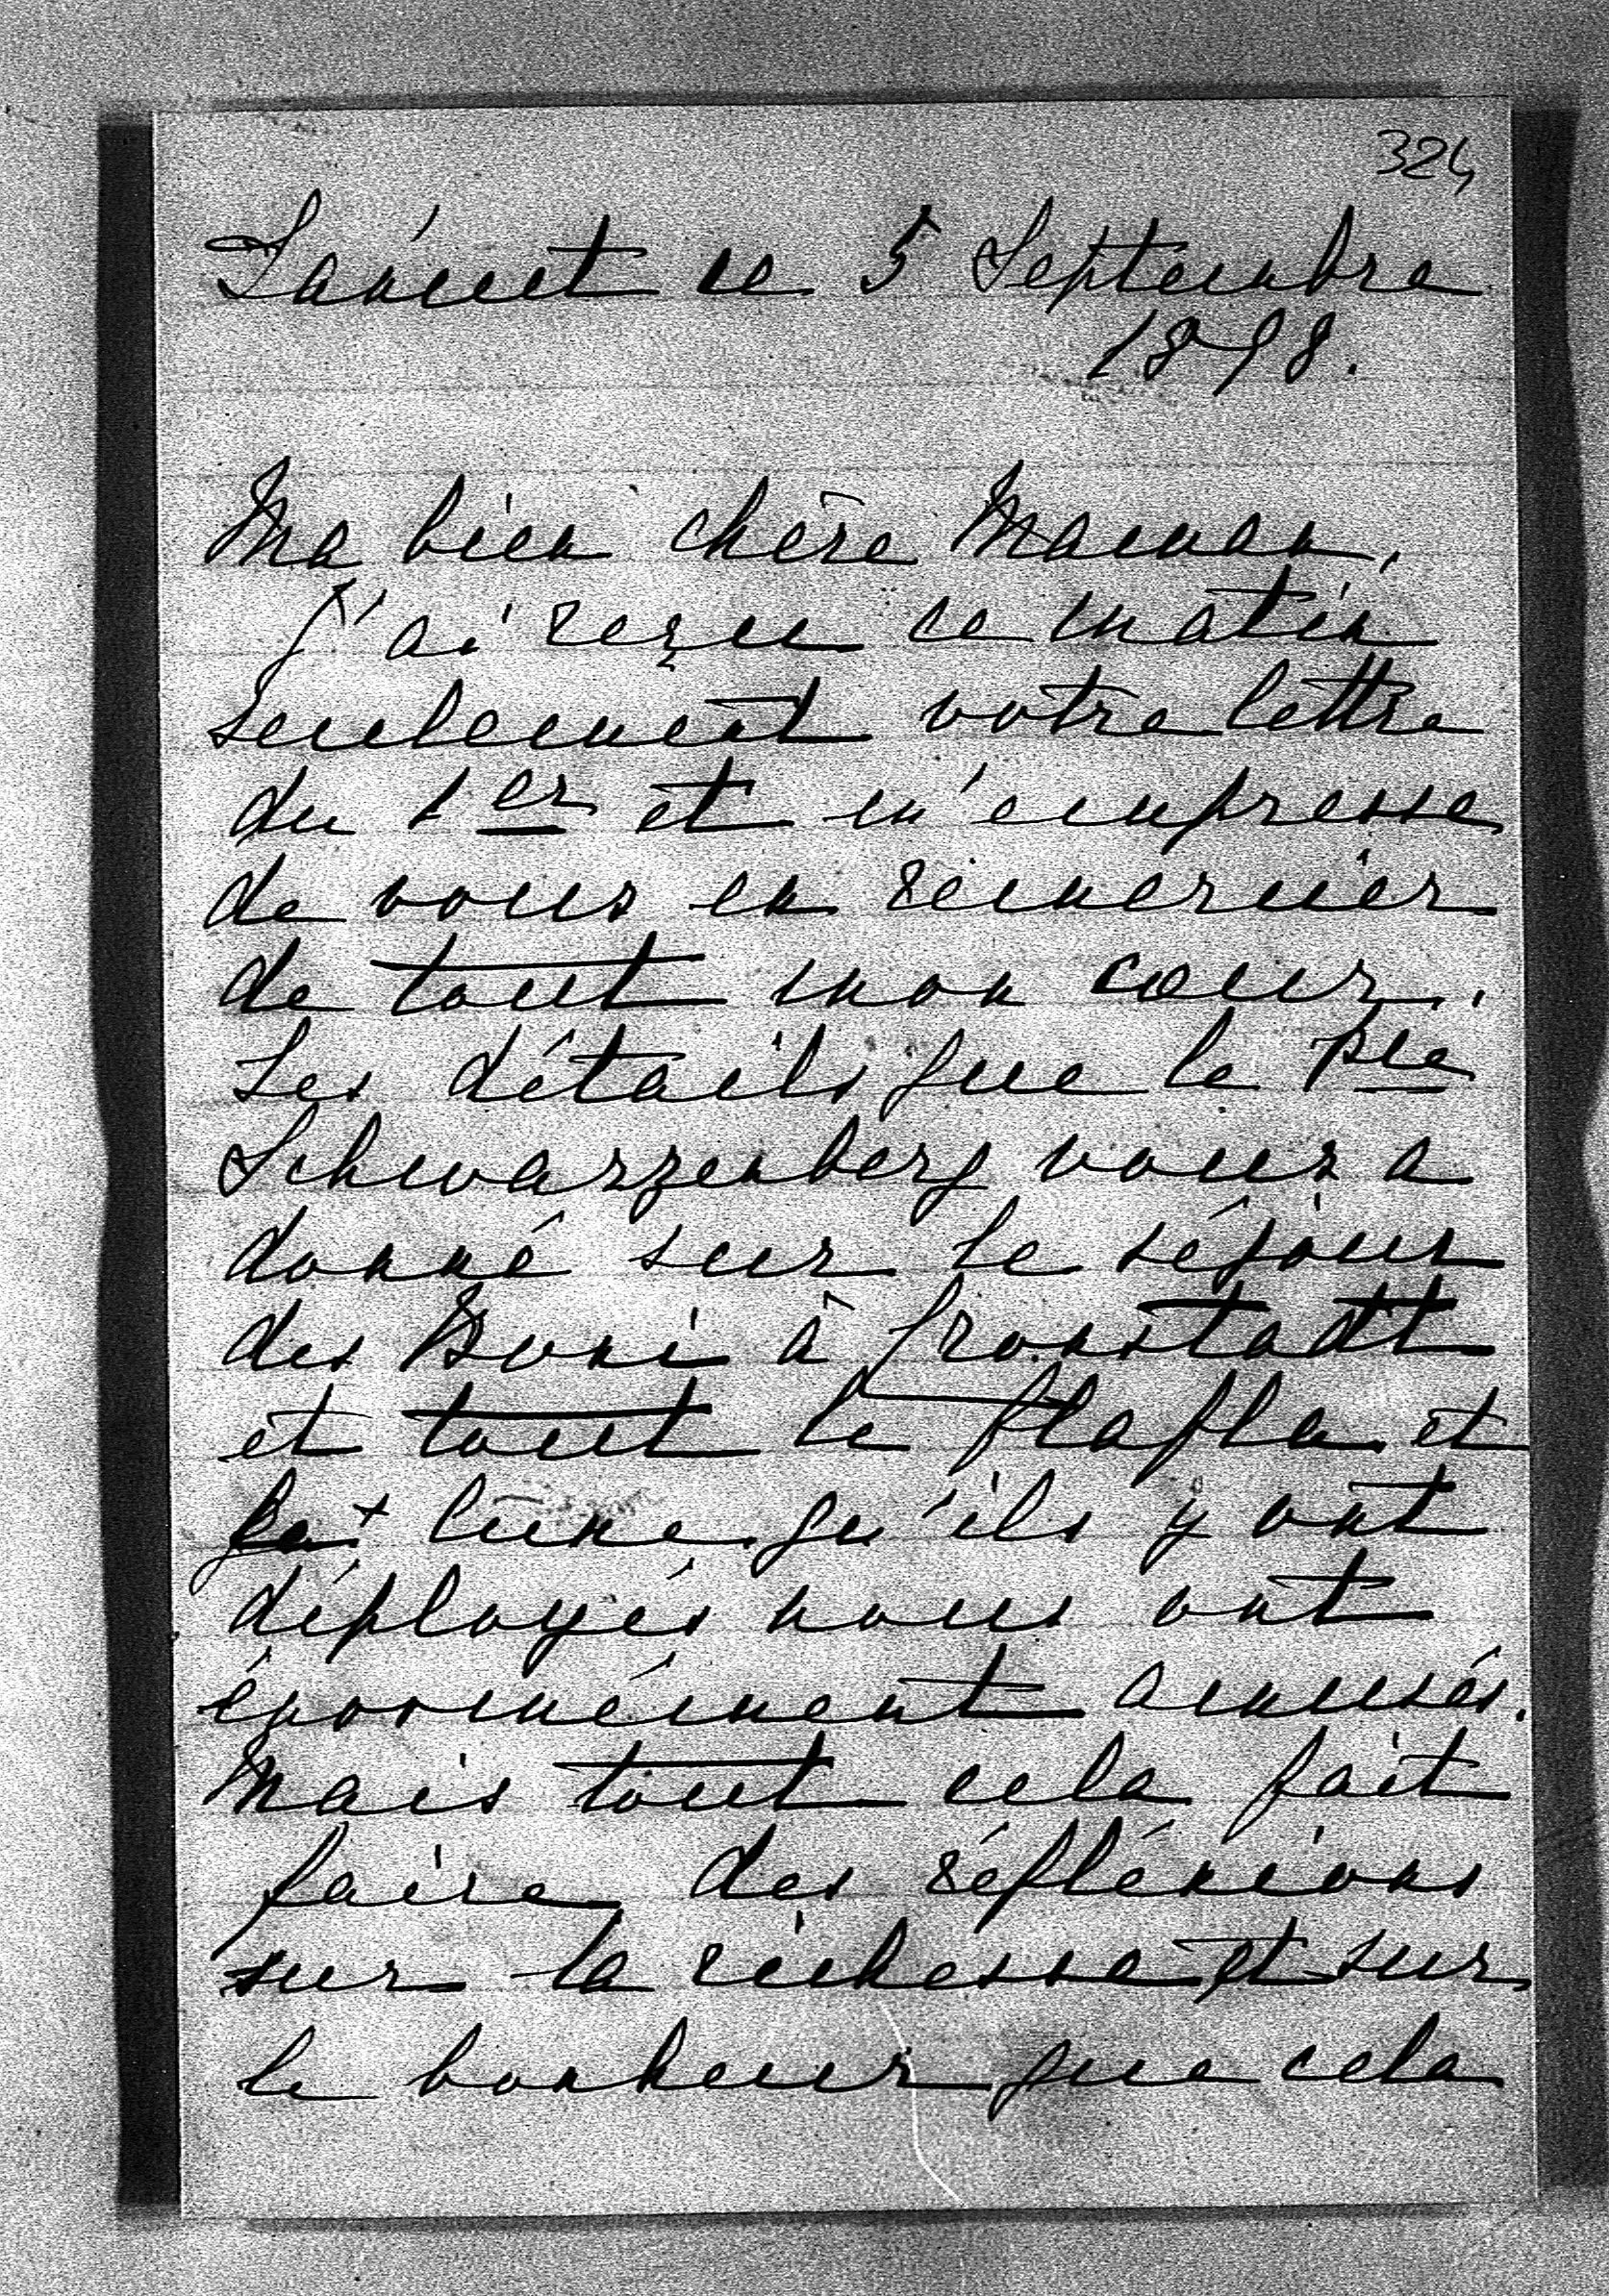 324
Łańcut ce 5 Septembre
1898.
Ma bien chère Maman,
J'ai reçu ce matin
seulement votre lettre
du 1er et m'empresse
de vous en remercier
de tout mon cœur.
Les détails que le pce
Schwarzenberg vous a
donné sur le séjour
des Boni à Fronstadt
et tout le flafla et
qu'ils y ont
déployés nous ont
énormément amusés.
Mais tout cela fait
faire des réfléxions
sur la richesse et sur
le bonheur que cela